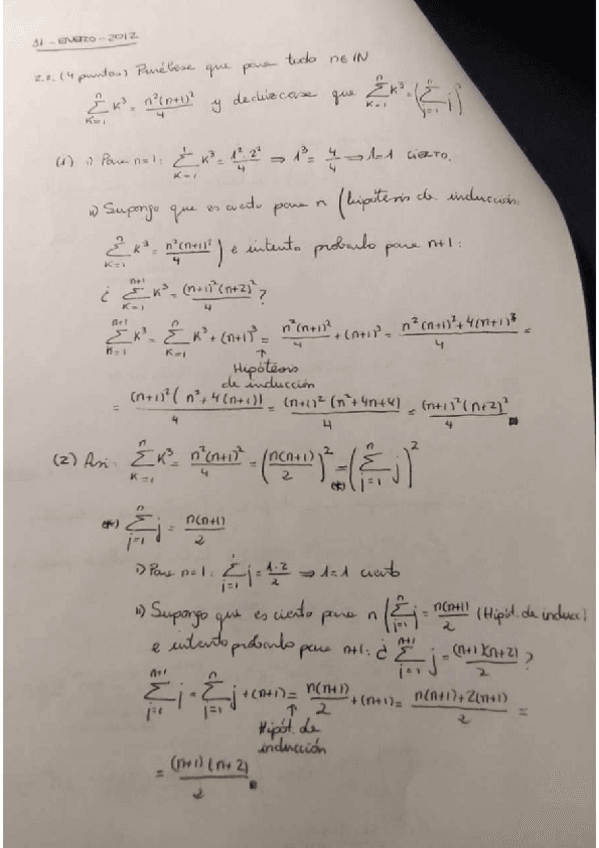 31-ENERO-2012
2.2. (4 puntos) Pruébese que para todo n∈IN
∑_{K=1}^{n} K³ = n²(n+1)²/4 y dedúzcase que ∑_{K=1}^{n} K³ = (∑_{j=1}^{n} j)²
(1) i) Para n=1: ∑_{K=1}^{1} K³ = 1²·2²/4 ⇒ 1³ = 4/4 ⇒ 1=1 CIERTO.
ii) Supongo que es cierto para n (hipótesis de inducción:
∑_{K=1}^{n} K³ = n²(n+1)²/4) e intento probarlo para n+1:
¿ ∑_{K=1}^{n+1} K³ = (n+1)²(n+2)²/4 ?
∑_{K=1}^{n+1} K³ = ∑_{K=1}^{n} K³ + (n+1)³ = n²(n+1)²/4 + (n+1)³ = n²(n+1)² + 4(n+1)³/4 =
↑
Hipótesis
de inducción
= (n+1)²(n² + 4(n+1))/4 = (n+1)²(n²+4n+4)/4 = (n+1)²(n+2)²/4 ■
(2) Así: ∑_{K=1}^{n} K³ = n²(n+1)²/4 = (n(n+1)/2)² =(*) (∑_{j=1}^{n} j)²
(*) ∑_{j=1}^{n} j = n(n+1)/2
i) Para n=1: ∑_{j=1}^{1} j = 1·2/2 ⇒ 1=1 cierto
ii) Supongo que es cierto para n (∑_{j=1}^{n} j = n(n+1)/2 (Hipót. de induca)
e intento probarlo para n+1: ¿ ∑_{j=1}^{n+1} j = (n+1)(n+2)/2 ?
∑_{j=1}^{n+1} j = ∑_{j=1}^{n} j + (n+1) = n(n+1)/2 + (n+1) = n(n+1)+2(n+1)/2 =
↑
Hipót. de
inducción
= (n+1)(n+2)/2 ■